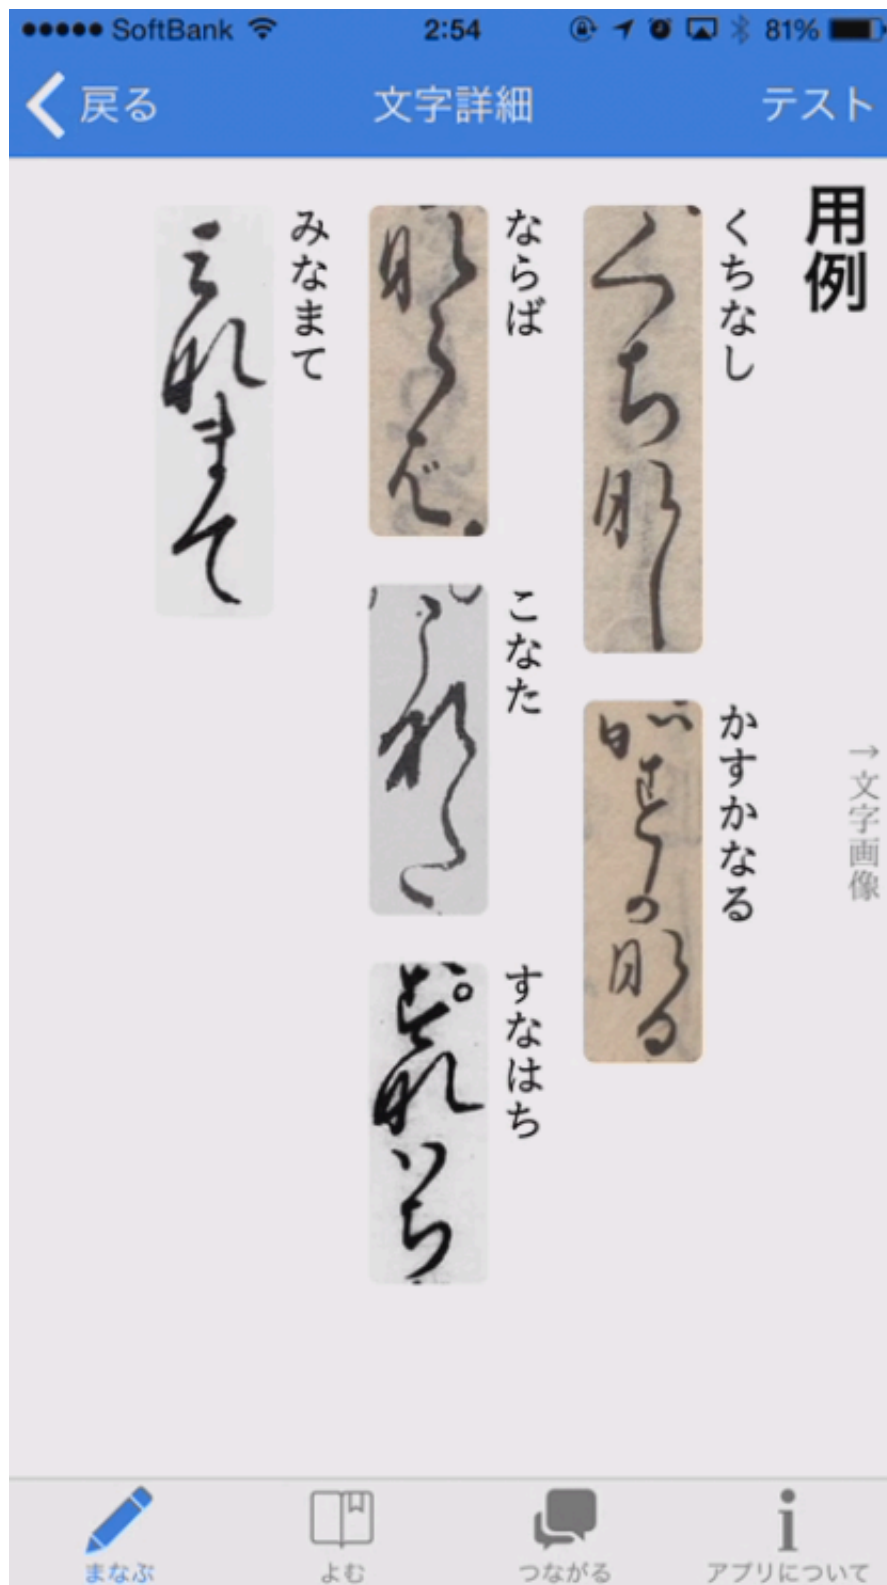 SoftBank 2:54 81%
戻る 文字詳細 テスト
用例
→文字画像
くちなし
かすかなる
ならば
こなた
すなはち
みなまて
まなぶ よむ つながる アプリについて